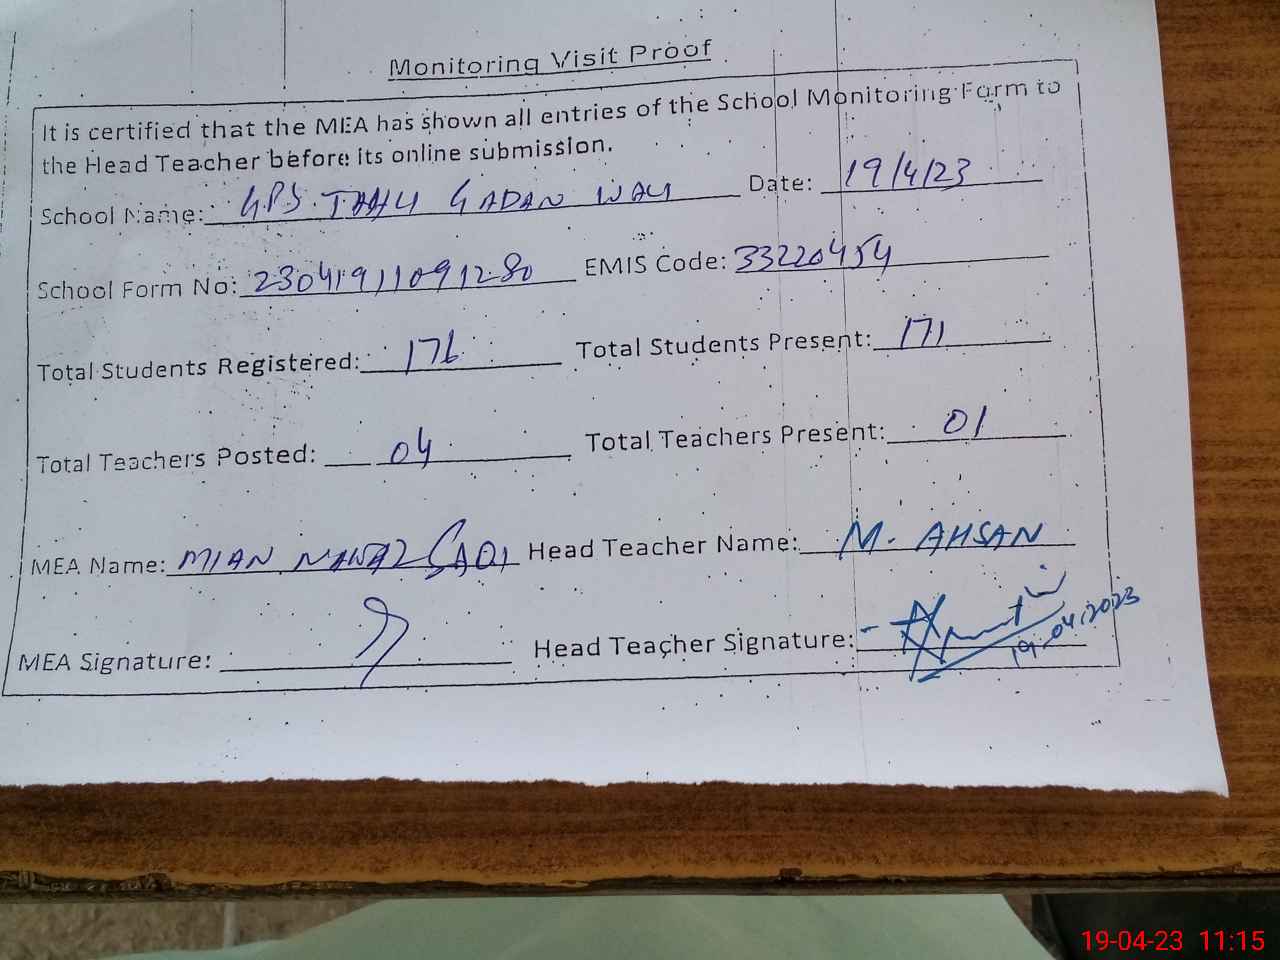 Monitoring Visit Proof
It is certified that the MEA has shown all entries of the School Monitoring Form to
the Head Teacher before its online submission.
School Name: GPS GADAN WALI Date: 19/4/23
School Form No: 23041911091280 EMIS Code: 33220454
Total Students Registered: 176 Total Students Present: 171
Total Teachers Posted: 04 Total Teachers Present: 01
MEA Name: MIAN NAWAZ SAQI Head Teacher Name: M. AHSAN
MEA Signature: Head Teacher Signature:
19.04.2023
19-04-23 11:15